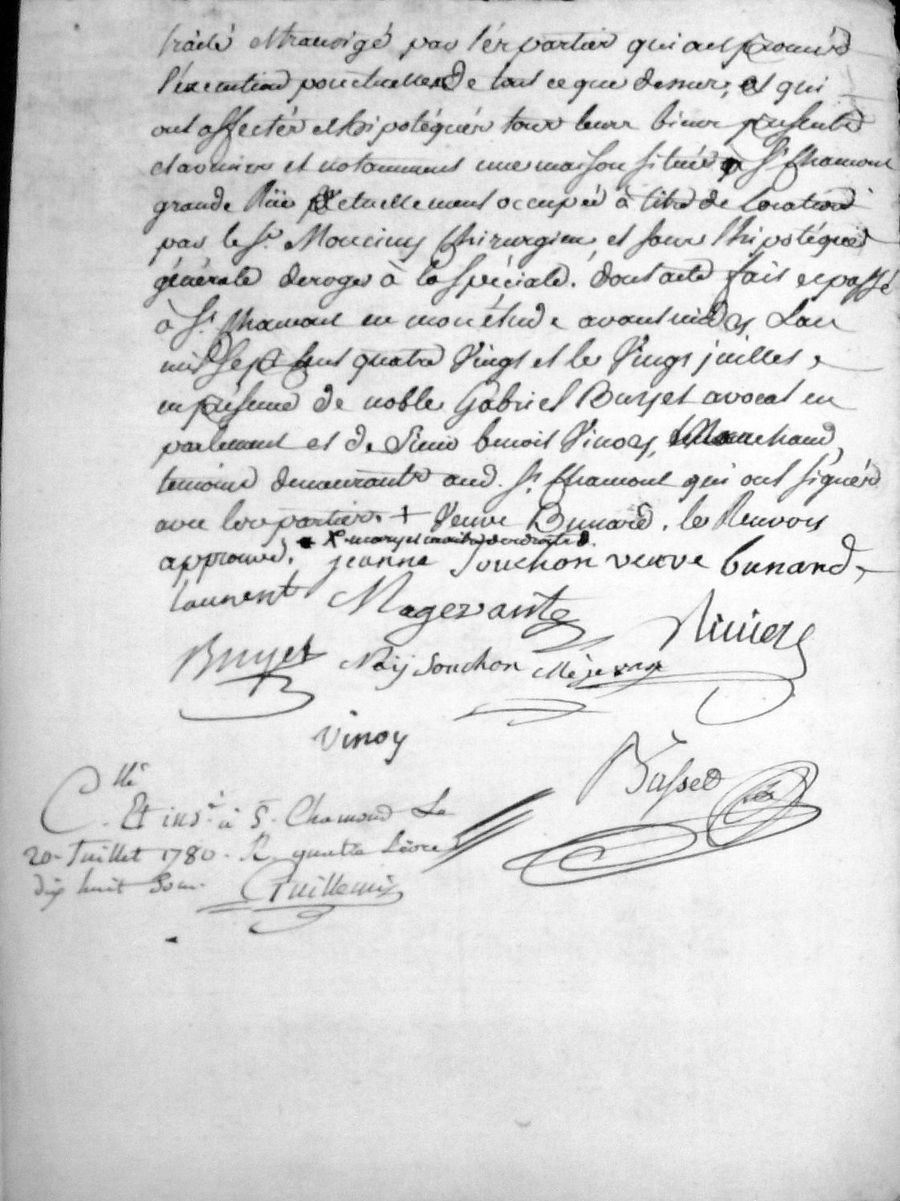 traité et transigé par les parties qui ont promis
l'execution ponctuelle de tout ce que dessus, et qui
ont affectés et hipotéqués tous leurs biens presents
et avenirs et notamment une maison située a St. Chamond
grande Rüe actuellement occupée à titre de location
par le Sr. chirurgien, et sans que l'hipotéque
générale deroge à la spéciale. dont acte fait et passé
à St. Chamond en mon étude avant midy, L'an
mil Sept Cent quatre Vingt et le Vingt juillet,
en présence de noble Gabriel Buyet avocat en
parlement et de Sieur benoit Vinoy, Marchand,
temoins demeurants aud. St. Chamond qui ont signés
avec les parties. + Veuve Bunard. le Renvoy
approuvé. X mary et maitre des droits d.
jeanne Souchon veuve bunard,
laurent Magevante Riviere
Buyet Noij Souchon
Vinoy
Basset
C llé
Et insé. à S. Chamond Le
20. Juillet 1780. R. quatre Livres
dix huit Sous. Guillemin